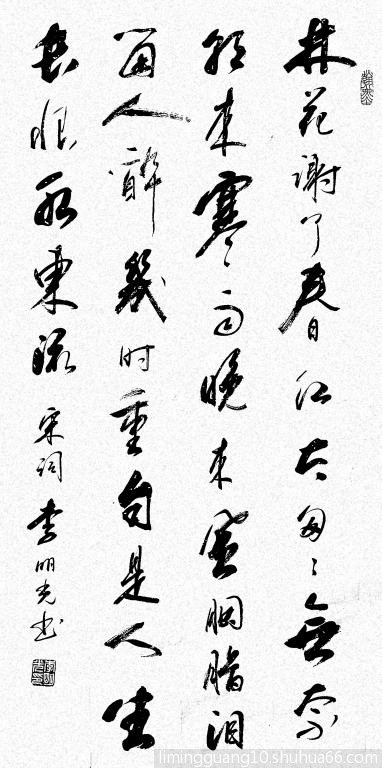 林花謝了春红太匆々無奈
朝来寒雨晚来風胭脂泪
留人醉幾时重自是人生
長恨水東流 宋词 李明光书
limingguang10.shuhua66.com